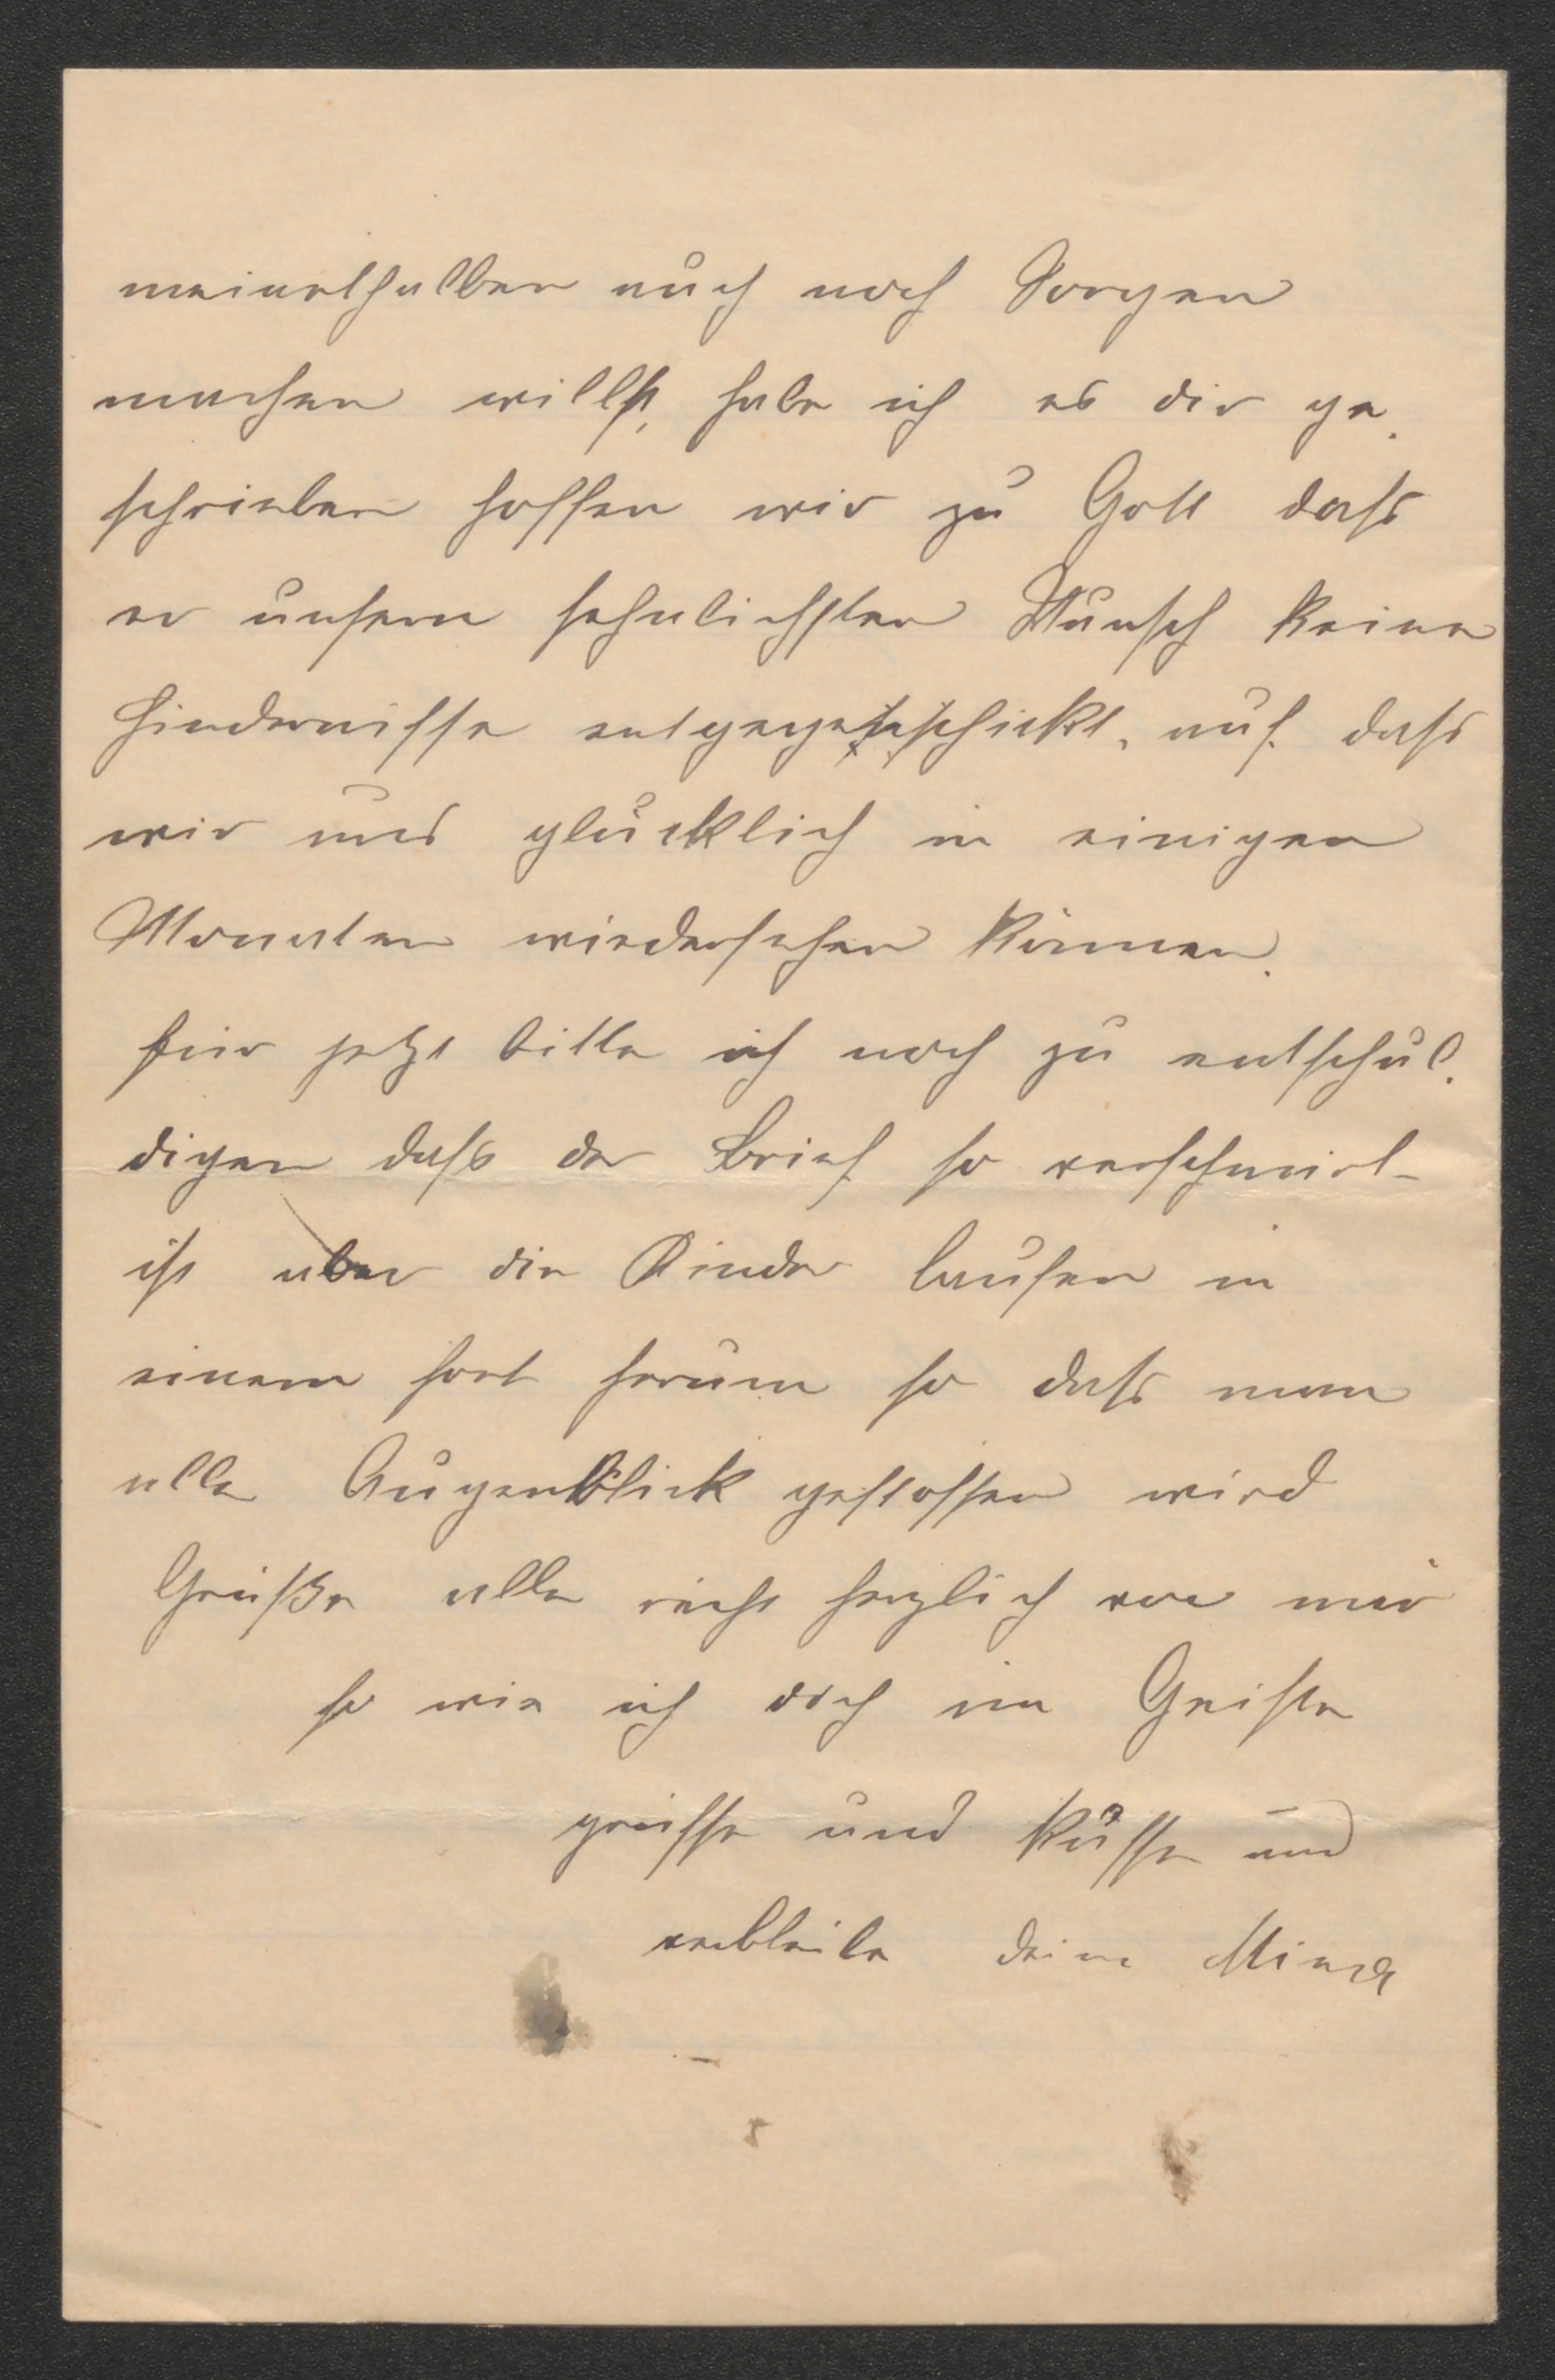 meinethalben auch noch Sorgen
machen willst, habe ich es dir ge-
schrieben hoffen wir zu Gott dass
er unsern sehnlichsten Wunsch keine
Hindernisse entgegenschickt, auf dass
wir uns glücklich in einigen
Monaten wiedersehen können.
für jetzt bitte ich noch zu entschul-
digen dass der Brief so verschmirt
ist aber die Kinder laufen in
einem fort herum so dass man
alle Augenblick gestossen wird
Grüße alle recht herzlich von mir
so wie ich dich im Geiste
grüsse und küsse und
verbleibe deine Mina